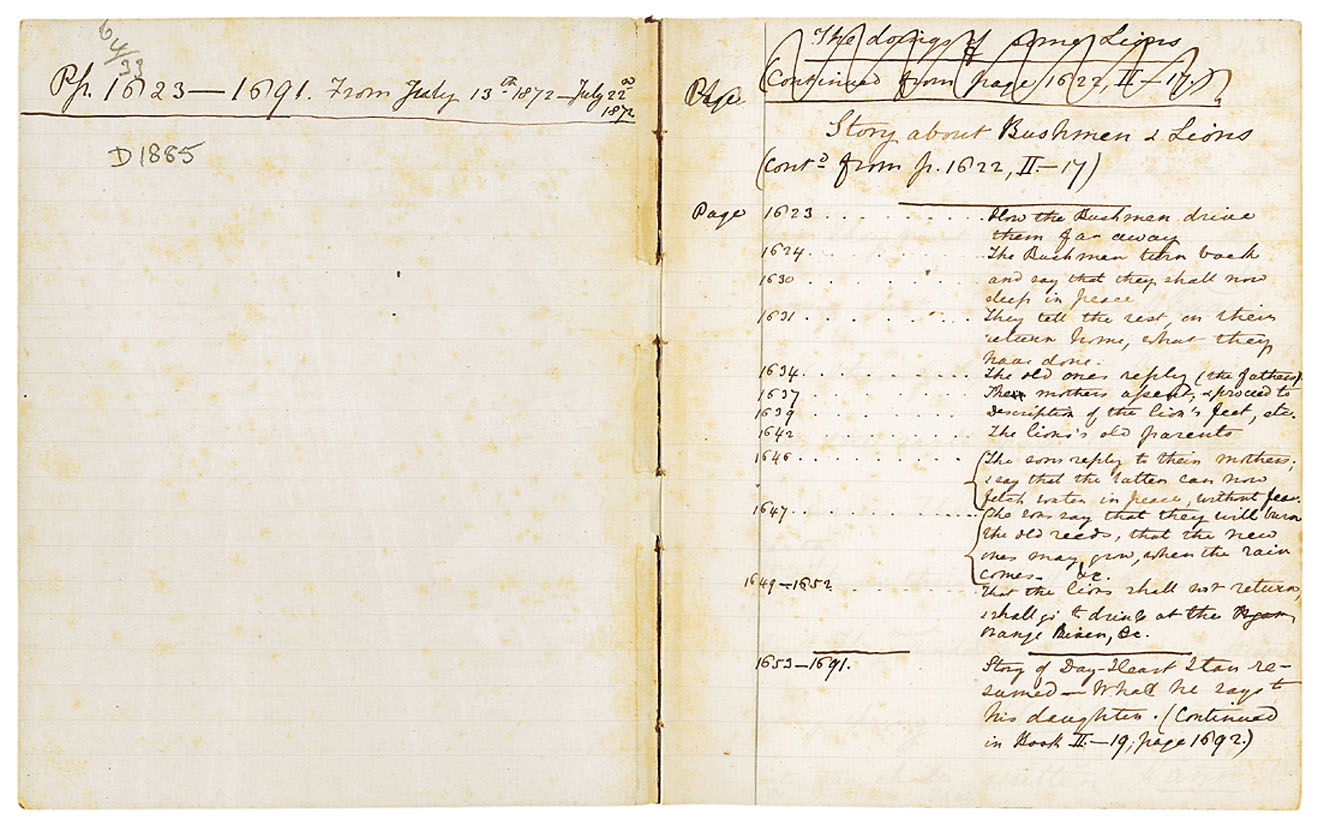 6 4/33
Pp. 1623—1691. From July 13th 1872—July 22d
1872
D 1885
The doings of some Lions
Page (Continued from page 1622, II.—17.)
Story about Bushmen & Lions
(contd from p. 1622, II.—17)
Page 1623 . . . . . . . . . How the Bushmen drive
them far away
1624. . . . . . . . . The Bushmen turn back
1630 . . . . . . . . and say that they shall now
sleep in peace
1631 . . . . . . . . . They tell the rest, on their
return home, what they
have done.
1634 . . . . . . . . . The old ones reply (the fathers).
1637 . . . . . . . . . The mothers assent, & proceed to
1639 . . . . . . . . . Description of the lion's feet, etc.
1642 . . . . . . . . . The lions's old parents
1646 . . . . . . . . . The sons reply to their mothers;
& say that the latter can now
fetch water in peace, without fear.
1647 . . . . . . . . . The sons say that they will burn
the old reeds, that the new
ones may grow, when the rain
comes— &c.
1649—1652 . . . . . . . . That the lions shall not return,
& shall go to drink at the
Orange River, &c.
1653—1691. Story of Day-Heart Star re-
sumed— What he says to
his daughter. (Continued
in Book II.—19, page 1692.)